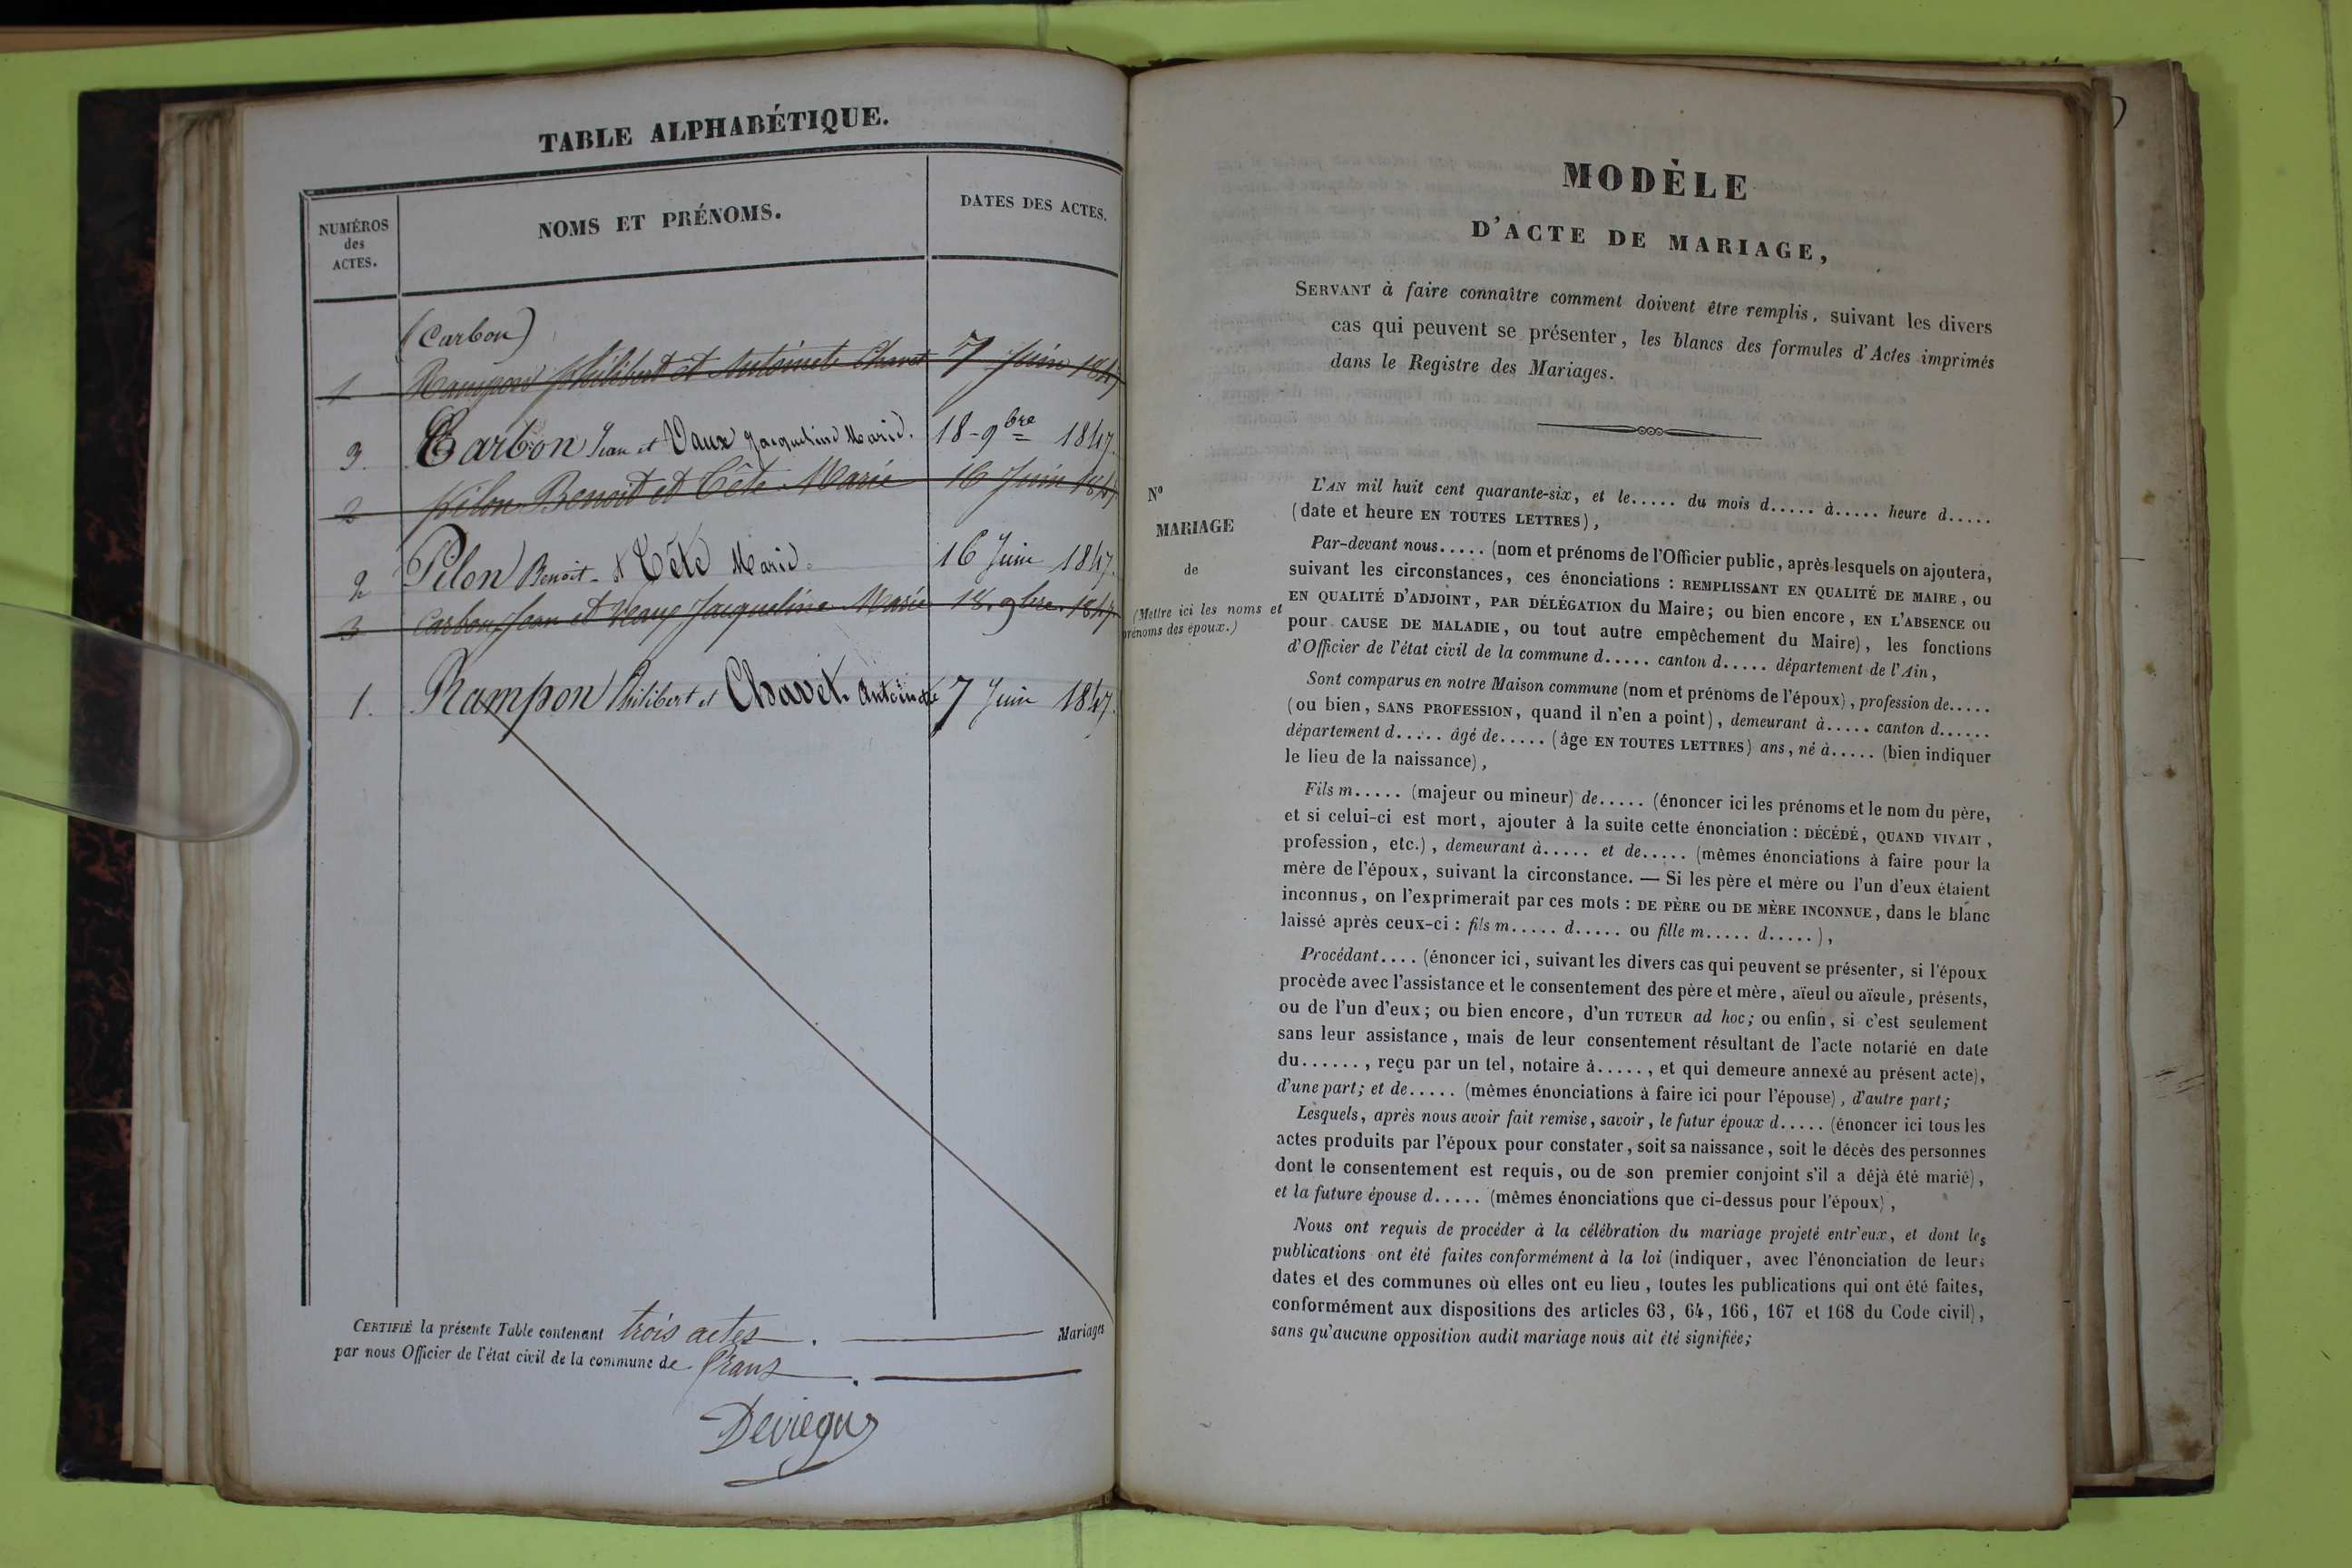 TABLE ALPHABÉTIQUE.
NUMÉROS
des
ACTES.
NOMS ET PRÉNOMS.
DATES DES ACTES.
(Carbon)
1 Rampon Philibert et Antoinete Chavet 7 Juin 1847
3. Carbon Jean et Vaux Jacqueline Marie. 18-9bre 1847.
2 Pilon Benoit et Tête Marie 16 Juin 1847
2 Pilon Benoit - & Tête Marie. 16 Juin 1847.
3 Carbon Jean et Veaux Jacqueline Marie 18. 9bre. 1847
1. Rampon Philibert et Chavet Antoinette 7 Juin 1847.
CERTIFIÉ la présente Table contenant trois actes. Mariages
par nous Officier de l'état civil de la commune de Frans.
MODÈLE
D'ACTE DE MARIAGE,
SERVANT à faire connaître comment doivent être remplis, suivant les divers
cas qui peuvent se présenter, les blancs des formules d'Actes imprimés
dans le Registre des Mariages.
No
MARIAGE
de
(Mettre ici les noms et
prénoms des époux.)
L'AN mil huit cent quarante-six, et le..... du mois d..... à..... heure d.....
(date et heure EN TOUTES LETTRES),
Par-devant nous..... (nom et prénoms de l'Officier public, après lesquels on ajoutera,
suivant les circonstances, ces énonciations : REMPLISSANT EN QUALITÉ DE MAIRE, ou
EN QUALITÉ D'ADJOINT, PAR DÉLÉGATION du Maire; ou bien encore, EN L'ABSENCE ou
pour CAUSE DE MALADIE, ou tout autre empêchement du Maire), les fonctions
d'Officier de l'état civil de la commune d..... canton d..... département de l'Ain,
Sont comparus en notre Maison commune (nom et prénoms de l'époux), profession de.....
(ou bien, SANS PROFESSION, quand il n'en a point), demeurant à..... canton d......
département d..... âgé de..... (âge EN TOUTES LETTRES) ans, né à..... (bien indiquer
le lieu de la naissance),
Fils m..... (majeur ou mineur) de..... (énoncer ici les prénoms et le nom du père,
et si celui-ci est mort, ajouter à la suite cette énonciation : DÉCÉDÉ, QUAND VIVAIT,
profession, etc.), demeurant à..... et de..... (mêmes énonciations à faire pour la
mère de l'époux, suivant la circonstance. — Si les père et mère ou l'un d'eux étaient
inconnus, on l'exprimerait par ces mots : DE PÈRE ou DE MÈRE INCONNUE, dans le blanc
laissé après ceux-ci : fils m..... d..... ou fille m..... d.....),
Procédant.... (énoncer ici, suivant les divers cas qui peuvent se présenter, si l'époux
procède avec l'assistance et le consentement des père et mère, aïeul ou aïeule, présents,
ou de l'un d'eux; ou bien encore, d'un TUTEUR ad hoc; ou enfin, si c'est seulement
sans leur assistance, mais de leur consentement résultant de l'acte notarié en date
du......, reçu par un tel, notaire à....., et qui demeure annexé au présent acte),
d'une part; et de..... (mêmes énonciations à faire ici pour l'épouse), d'autre part;
Lesquels, après nous avoir fait remise, savoir, le futur époux d..... (énoncer ici tous les
actes produits par l'époux pour constater, soit sa naissance, soit le décès des personnes
dont le consentement est requis, ou de son premier conjoint s'il a déjà été marié),
et la future épouse d..... (mêmes énonciations que ci-dessus pour l'époux),
Nous ont requis de procéder à la célébration du mariage projeté entr'eux, et dont les
publications ont été faites conformément à la loi (indiquer, avec l'énonciation de leurs
dates et des communes où elles ont eu lieu, toutes les publications qui ont été faites,
conformément aux dispositions des articles 63, 64, 166, 167 et 168 du Code civil),
sans qu'aucune opposition audit mariage nous ait été signifiée;